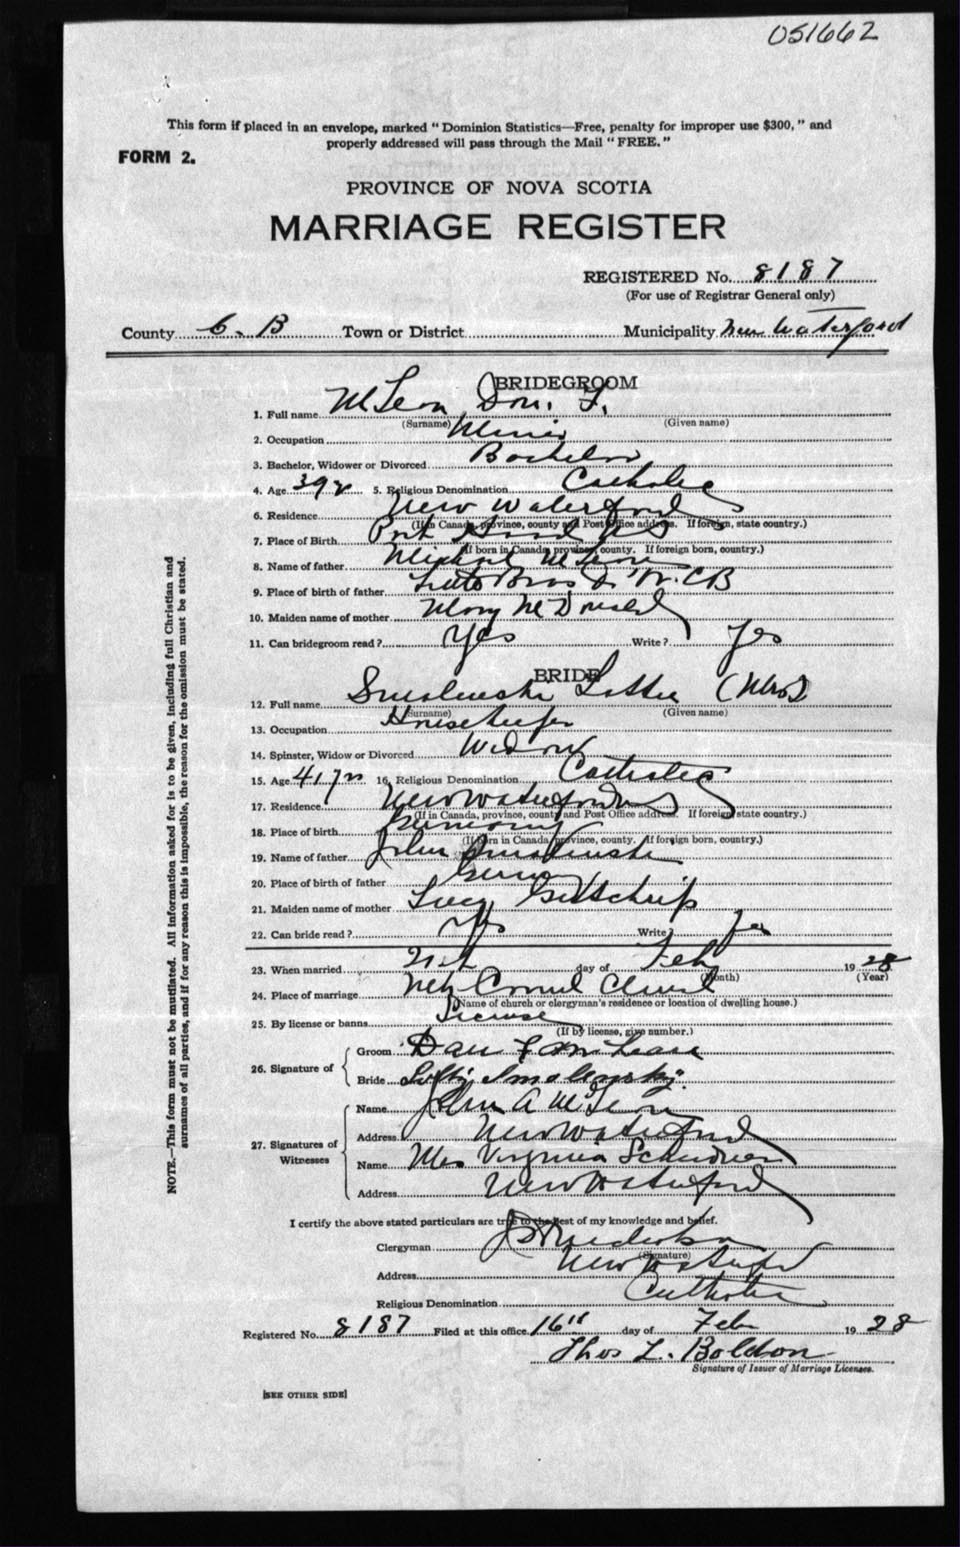 051662
This form if placed in an envelope, marked "Dominion Statistics—Free, penalty for improper use $300," and
properly addressed will pass through the Mail "FREE."
FORM 2.
PROVINCE OF NOVA SCOTIA
MARRIAGE REGISTER
REGISTERED No. 8187
(For use of Registrar General only)
County C. B Town or District Municipality New Waterford
BRIDEGROOM
1. Full name McLean Dan. F.
(Surname) (Given name)
2. Occupation Miner
3. Bachelor, Widower or Divorced Bachelor
4. Age 39 yr 5. Religious Denomination Catholic
6. Residence New Waterford
(If in Canada, province, county and Post Office address. If foreign, state country.)
7. Place of Birth Port Hood
(If born in Canada, province, county. If foreign born, country.)
8. Name of father Michael McLean
9. Place of birth of father Little Bras D'Or. CB
10. Maiden name of mother Mary McDonald
11. Can bridegroom read? Yes Write? Yes
BRIDE
12. Full name Smolenski Lottie (Mrs)
(Surname) (Given name)
13. Occupation Housekeeper
14. Spinster, Widow or Divorced Widow
15. Age 41 yrs 16. Religious Denomination Catholic
17. Residence New Waterford
(If in Canada, province, county and Post Office address. If foreign, state country.)
18. Place of birth Germany
(If born in Canada, province, county. If foreign born, country.)
19. Name of father John Smolenski
20. Place of birth of father
21. Maiden name of mother Lucy
22. Can bride read? Yes Write? Yes
23. When married day of Feb 1928
(Month) (Year)
24. Place of marriage Mt Carmel Church
(Name of church or clergyman's residence or location of dwelling house.)
25. By license or banns License
(If by license, give number.)
26. Signature of Groom Dan F McLean
Bride Smolensky.
27. Signatures of Witnesses Name John A McLean
Address New Waterford
Name Mrs Virginia
Address New Waterford
I certify the above stated particulars are true to the best of my knowledge and belief.
Clergyman
(Signature)
Address New Waterford
Religious Denomination Catholic
Registered No. 8187 Filed at this office 16th day of Feb 1928
Thos L. Boldon
Signature of Issuer of Marriage Licenses.
[SEE OTHER SIDE]
NOTE.—This form must not be mutilated. All information asked for is to be given, including full Christian and
surnames of all parties, and if for any reason this is impossible, the reason for the omission must be stated.